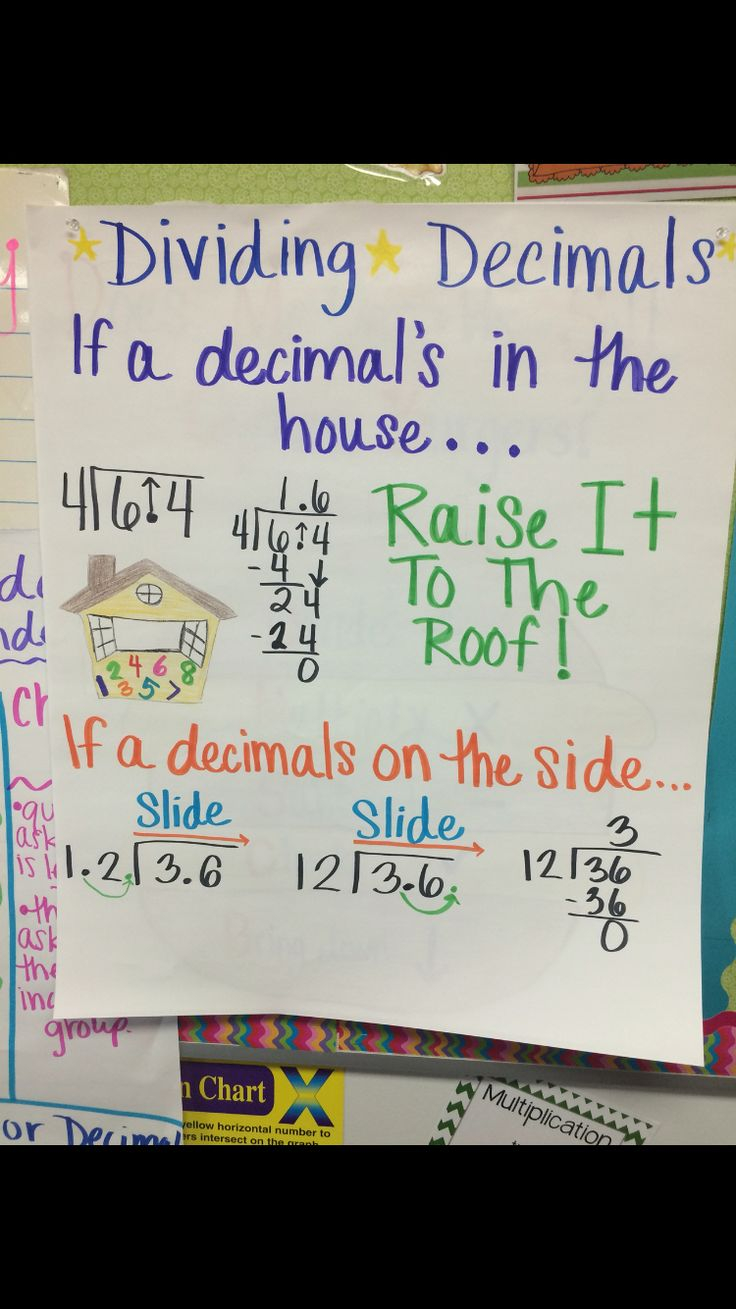 Dividing Decimals
If a decimal's in the
house...
4 6.4
1.6
4 6.4
- 4
24
- 24
0
Raise It
To The
Roof!
2 4 6 8
1 3 5 7
If a decimals on the side...
Slide
1.2 3.6
Slide
12 3.6.
3
12 36
- 36
0
group.
or Decimal
Chart X
yellow horizontal number to
intersect on the graph
Multiplication